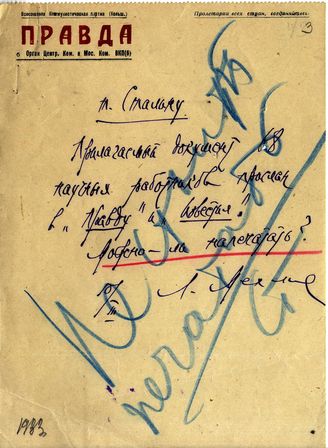 Всесоюзная Коммунистическая партия (больш.)
Пролетарии всех стран, соединяйтесь!
ПРАВДА
Орган Центр. Ком. и Мос. Ком. ВКП(б)
3
т. Сталину
Прилагаемый документ 68
научных работников прислан
в „Правду" и „Известия".
Можно-ли напечатать?
Л. Мехлис
Не печатать
1933